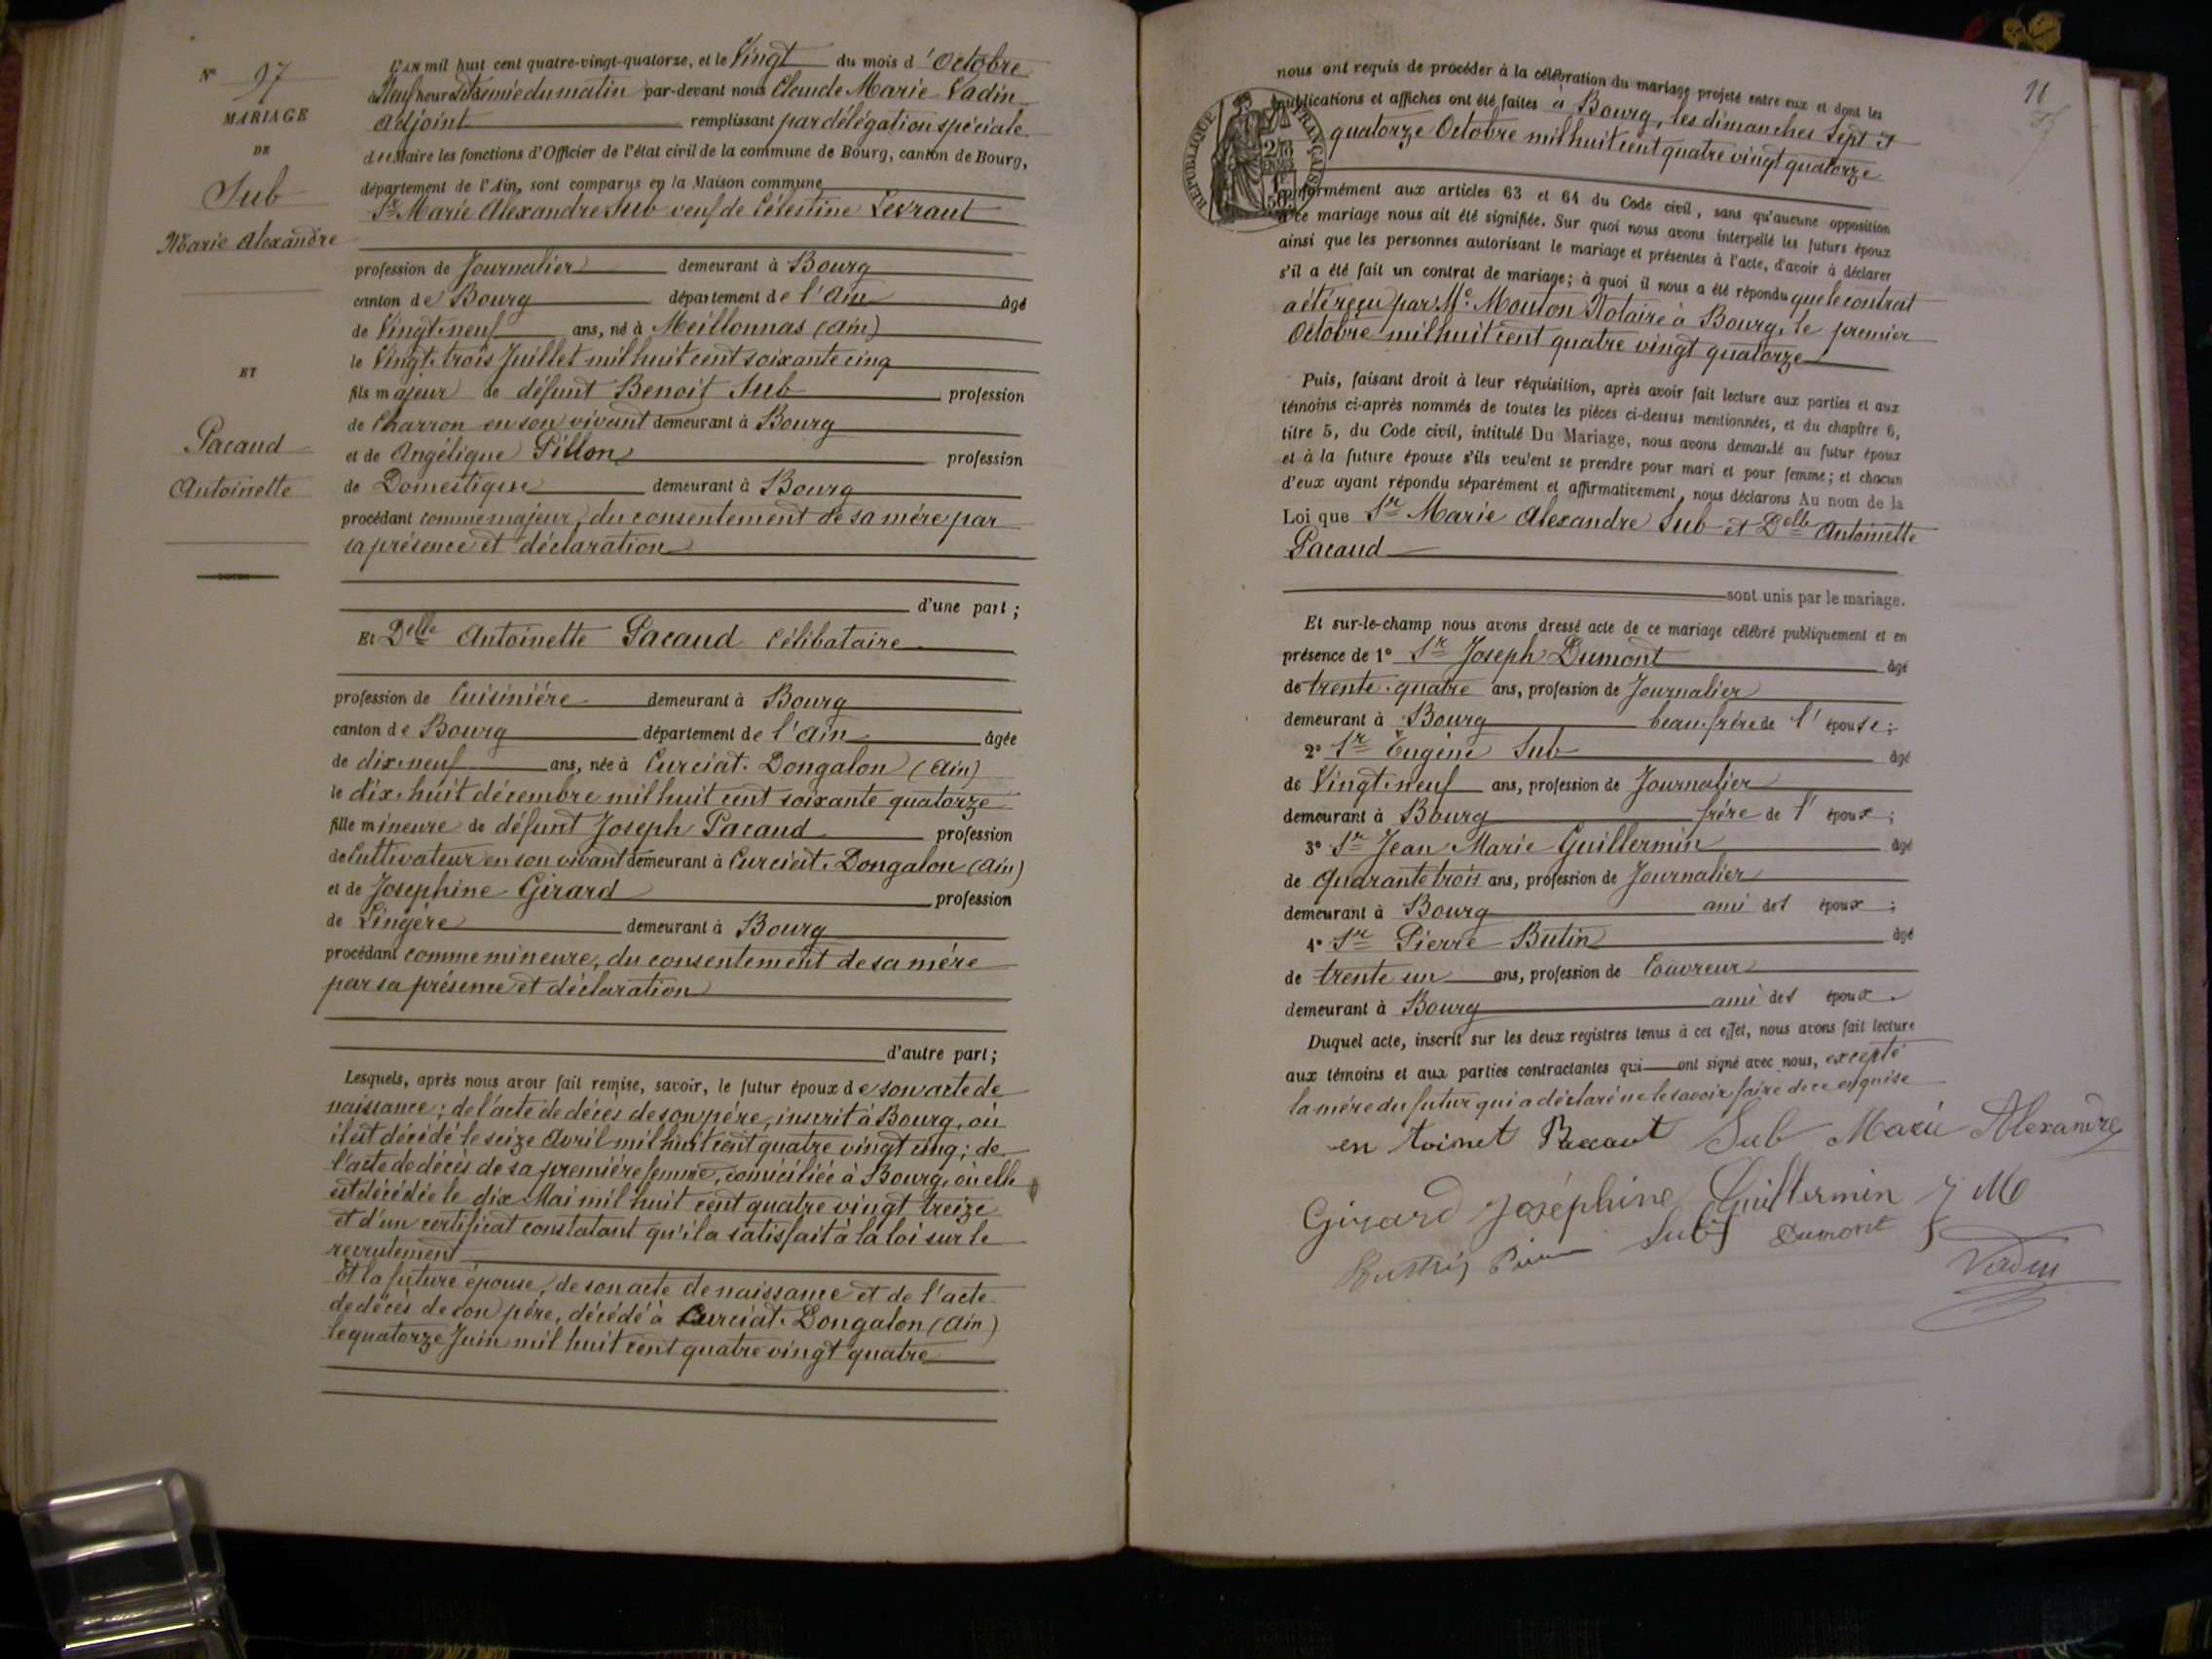 N° 97
MARIAGE
DE
Sub
Marie Alexandre
ET
Pacaud
Antoinette
L'AN mil huit cent quatre-vingt-quatorze, et le Vingt du mois d'Octobre
à Neuf heures et demie du matin par-devant nous Claude Marie Vadin
Adjoint remplissant par délégation spéciale
du Maire les fonctions d'Officier de l'état civil de la commune de Bourg, canton de Bourg,
département de l'Ain, sont comparus en la Maison commune
Sr Marie Alexandre Sub veuf de Célestine Levrant
profession de Journalier demeurant à Bourg
canton de Bourg département de l'Ain âgé
de Vingt-neuf ans, né à Meillonnas (Ain)
le Vingt-trois Juillet mil huit cent soixante cinq
fils majeur de défunt Benoit Sub profession
de Charron en son vivant demeurant à Bourg
et de Angélique Pillon profession
de Domestique demeurant à Bourg
procédant comme majeur, du consentement de sa mère par
sa présence et déclaration
d'une part;
Et Delle Antoinette Pacaud Célibataire
profession de Cuisinière demeurant à Bourg
canton de Bourg département de l'Ain âgée
de dix-neuf ans, née à Curciat-Dongalon (Ain)
le dix-huit décembre mil huit cent soixante quatorze
fille mineure de défunt Joseph Pacaud profession
de Cultivateur en son vivant demeurant à Curciat-Dongalon (Ain)
et de Josephine Girard profession
de Lingère demeurant à Bourg
procédant comme mineure, du consentement de sa mère
par sa présence et déclaration
d'autre part;
Lesquels, après nous avoir fait remise, savoir, le futur époux de son acte de
naissance; de l'acte de décès de son père, inscrit à Bourg, où
il est décédé le seize Avril mil huit cent quatre vingt cinq; de
l'acte de décès de sa première femme, domiciliée à Bourg, où elle
est décédée le dix Mai mil huit cent quatre vingt treize
et d'un certificat constatant qu'il a satisfait à la loi sur le
recrutement
Et la future épouse, de son acte de naissance et de l'acte
de décès de son père, décédé à Curciat-Dongalon (Ain)
le quatorze Juin mil huit cent quatre vingt quatre
RÉPUBLIQUE FRANÇAISE
nous ont requis de procéder à la célébration du mariage projeté entre eux et dont les
publications et affiches ont été faites à Bourg, les dimanches Sept et
quatorze Octobre mil huit cent quatre vingt quatorze
conformément aux articles 63 et 64 du Code civil, sans qu'aucune opposition
à ce mariage nous ait été signifiée. Sur quoi nous avons interpellé les futurs époux
ainsi que les personnes autorisant le mariage et présentes à l'acte, d'avoir à déclarer
s'il a été fait un contrat de mariage; à quoi il nous a été répondu que le contrat
a été reçu par Me Mouton Notaire à Bourg, le premier
Octobre mil huit cent quatre vingt quatorze
Puis, faisant droit à leur réquisition, après avoir fait lecture aux parties et aux
témoins ci-après nommés de toutes les pièces ci-dessus mentionnées, et du chapitre 6,
titre 5, du Code civil, intitulé Du Mariage, nous avons demandé au futur époux
et à la future épouse s'ils veulent se prendre pour mari et pour femme; et chacun
d'eux ayant répondu séparément et affirmativement, nous déclarons Au nom de la
Loi que Sr Marie Alexandre Sub et Delle Antoinette
Pacaud
sont unis par le mariage.
Et sur-le-champ nous avons dressé acte de ce mariage célébré publiquement et en
présence de 1° Sr Joseph Dumont âgé
de trente-quatre ans, profession de Journalier
demeurant à Bourg beau-frère de l'épouse;
2° Sr Eugène Sub âgé
de Vingt-neuf ans, profession de Journalier
demeurant à Bourg frère de l'époux;
3° Sr Jean Marie Guillermin âgé
de quarante trois ans, profession de Journalier
demeurant à Bourg ami des époux;
4° Sr Pierre Butin âgé
de trente un ans, profession de Couvreur
demeurant à Bourg ami des époux.
Duquel acte, inscrit sur les deux registres tenus à cet effet, nous avons fait lecture
aux témoins et aux parties contractantes qui ont signé avec nous, excepté
la mère du futur qui a déclaré ne le savoir faire de ce enquise
en toinet Pacaut Sub Marie Alexandre
Girard Joséphine Guillermin J M
Sub Dumont
Vadin